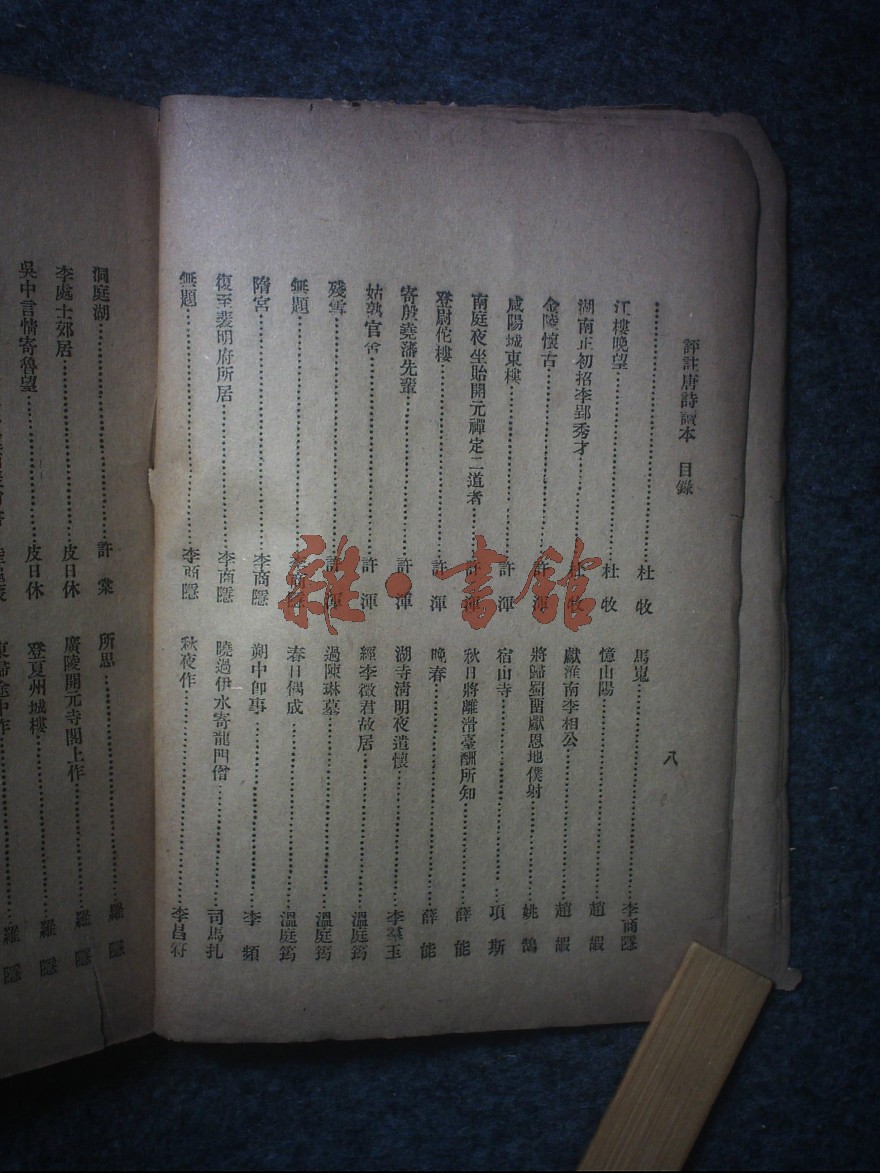 評註唐詩讀本 目錄
八
………杜牧
江樓晚望………杜牧
湖南正初招李郢秀才………杜牧
金陵懷古………許渾
咸陽城東樓………許渾
南庭夜坐貽開元禪定二道者………許渾
登尉佗樓………許渾
寄殷堯藩先輩………許渾
姑孰官舍………許渾
殘雪………許渾
無題………李商隱
隋宮………李商隱
復至裴明府所居………李商隱
無題………李商隱
馬嵬………李商隱
憶山陽………趙嘏
獻淮南李相公………趙嘏
將歸蜀留獻恩地僕射………姚鵠
宿山寺………項斯
秋日將離滑臺酬所知………薛能
晚春………薛能
湖寺清明夜遣懷………李羣玉
經李徵君故居………溫庭筠
過陳琳墓………溫庭筠
春日偶成………溫庭筠
朔中卽事………李頻
曉過伊水寄龍門僧………司馬扎
秋夜作………李昌符
洞庭湖………許棠
李處士郊居………皮日休
吳中言情寄魯望………皮日休
所思………羅隱
廣陵開元寺閣上作………羅隱
登夏州城樓………羅隱
雜·書館